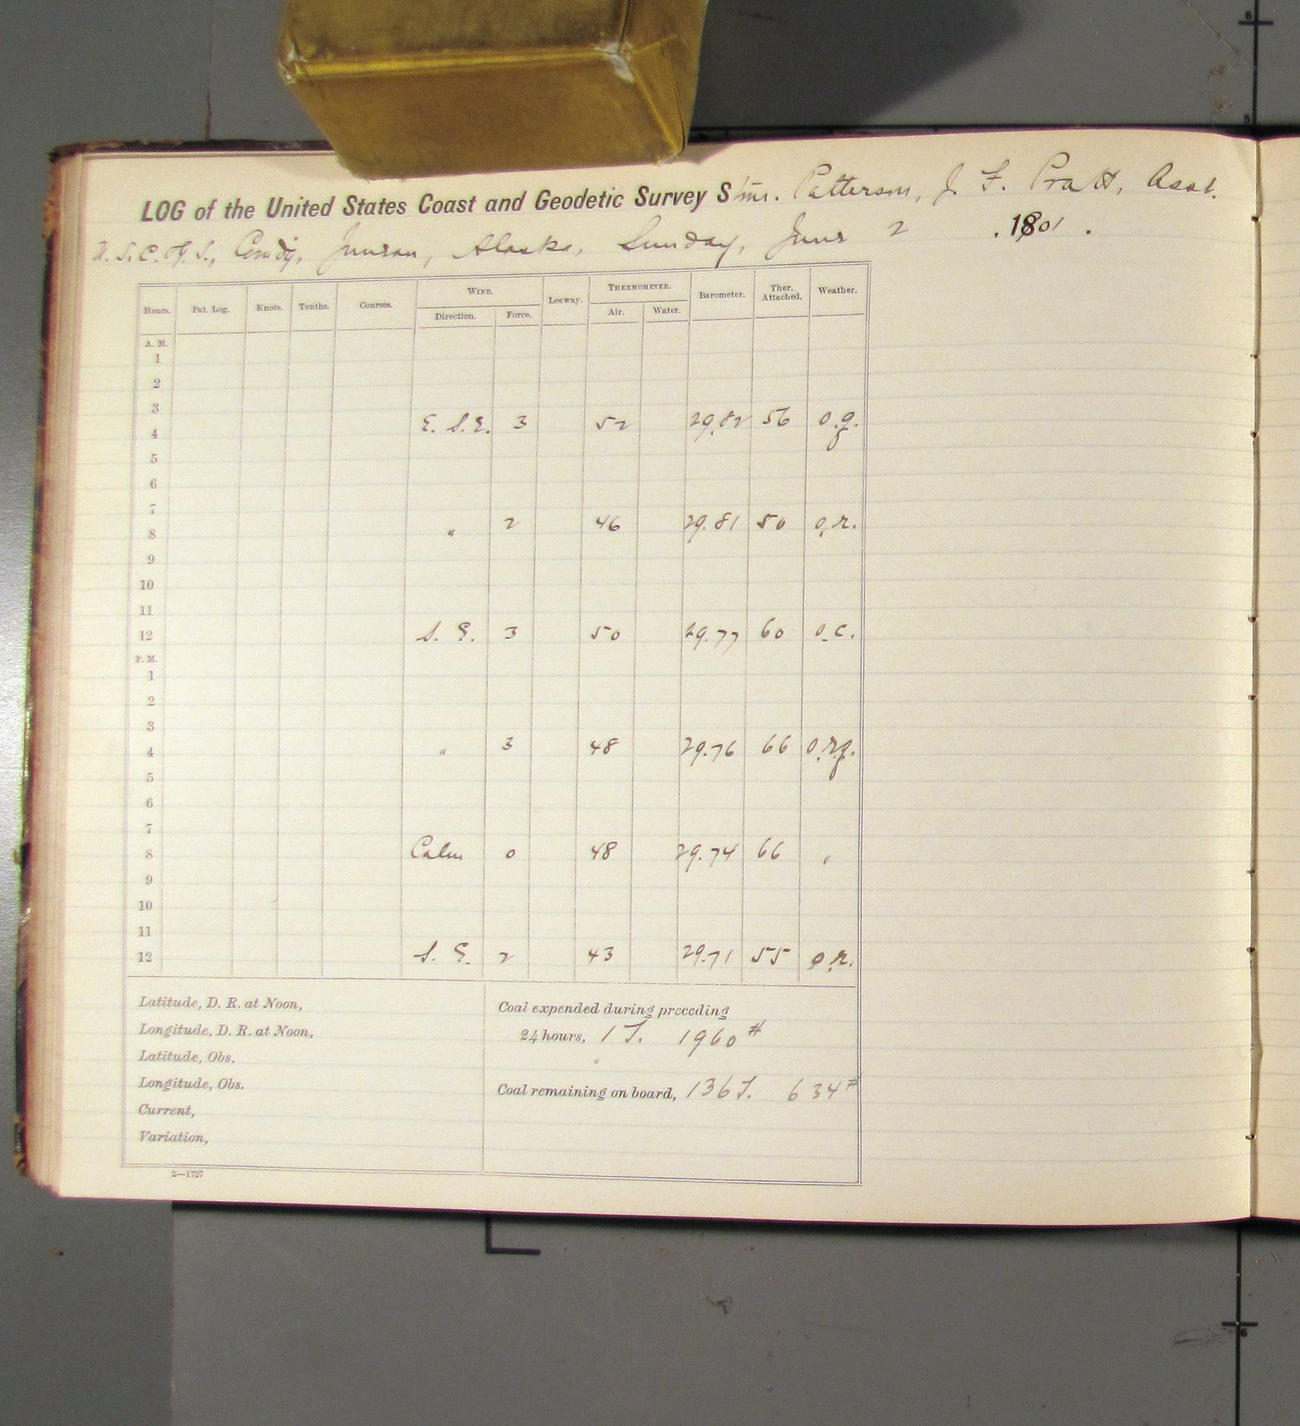 LOG of the United States Coast and Geodetic Survey Stmr. Patterson, J. F. Pratt, Asst.
U. S. C. & G. S., Comd'g, Juneau, Alaska, Sunday, June 2, 1901.
Hours. Pat. Log. Knots. Tenths. Courses. WIND. Leeway. THERMOMETER. Barometer. Ther. Attached. Weather.
Direction. Force. Air. Water.
A. M.
1
2
3
4 E. S. E. 3 52 29.82 56 o.g.
5
6
7
8 " 2 46 29.81 50 o.r.
9
10
11
12 S. E. 3 50 29.77 60 o.c.
P. M.
1
2
3
4 " 3 48 29.76 66 o.r.g.
5
6
7
8 Calm 0 48 29.74 66 "
9
10
11
12 S. E. 2 43 29.71 55 o.r.
Latitude, D. R. at Noon,
Longitude, D. R. at Noon,
Latitude, Obs.
Longitude, Obs.
Current,
Variation,
Coal expended during preceding
24 hours, 1 T. 1960 #
Coal remaining on board, 136 T. 634 #
2—1727